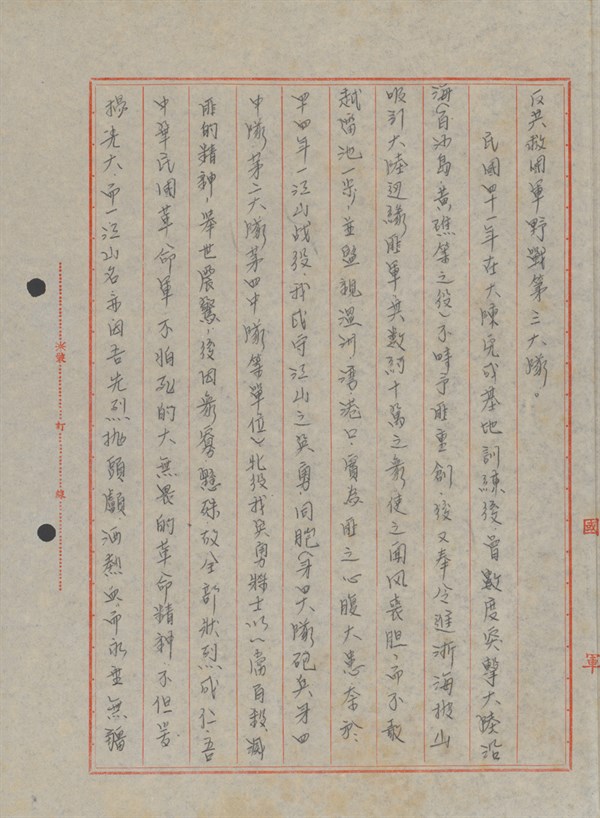 反共救囯軍野戰第三大隊。
民囯四十一年在大陳完成基地訓練後曾數度突擊大陸沿
海(白沙島黃礁等之役)不時予匪重創.後又奉令進浙海披山
吸引大陸边緣匪軍.兵数約十萬之衆使之闻风丧胆.而不敢
越雷池一步.並監視温州湾港口.實為匪之心腹大患奈於
四四年一江山战役.我戍守江山之英勇同胞(第四大隊砲兵第四
中隊第二大隊第四中隊等單位)此役我英勇将士以一當百殺滅
匪的精神,舉世震驚,後因衆寡懸殊故全部状烈成仁.吾
中華民囯革命軍不怕死的大無畏的革命精神.不但發
揚光大.而一江山名亦因吾先烈抛頭顱.洒熱血而永垂無疆
裝
訂
線
國
軍